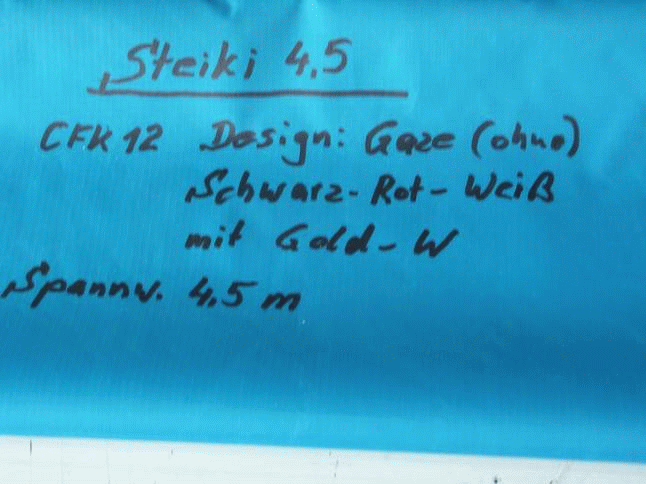 Steiki 4.5
CFK 12 Design: Gaze (ohne)
Schwarz-Rot-Weiß
mit Gold-W
Spannw. 4.5 m